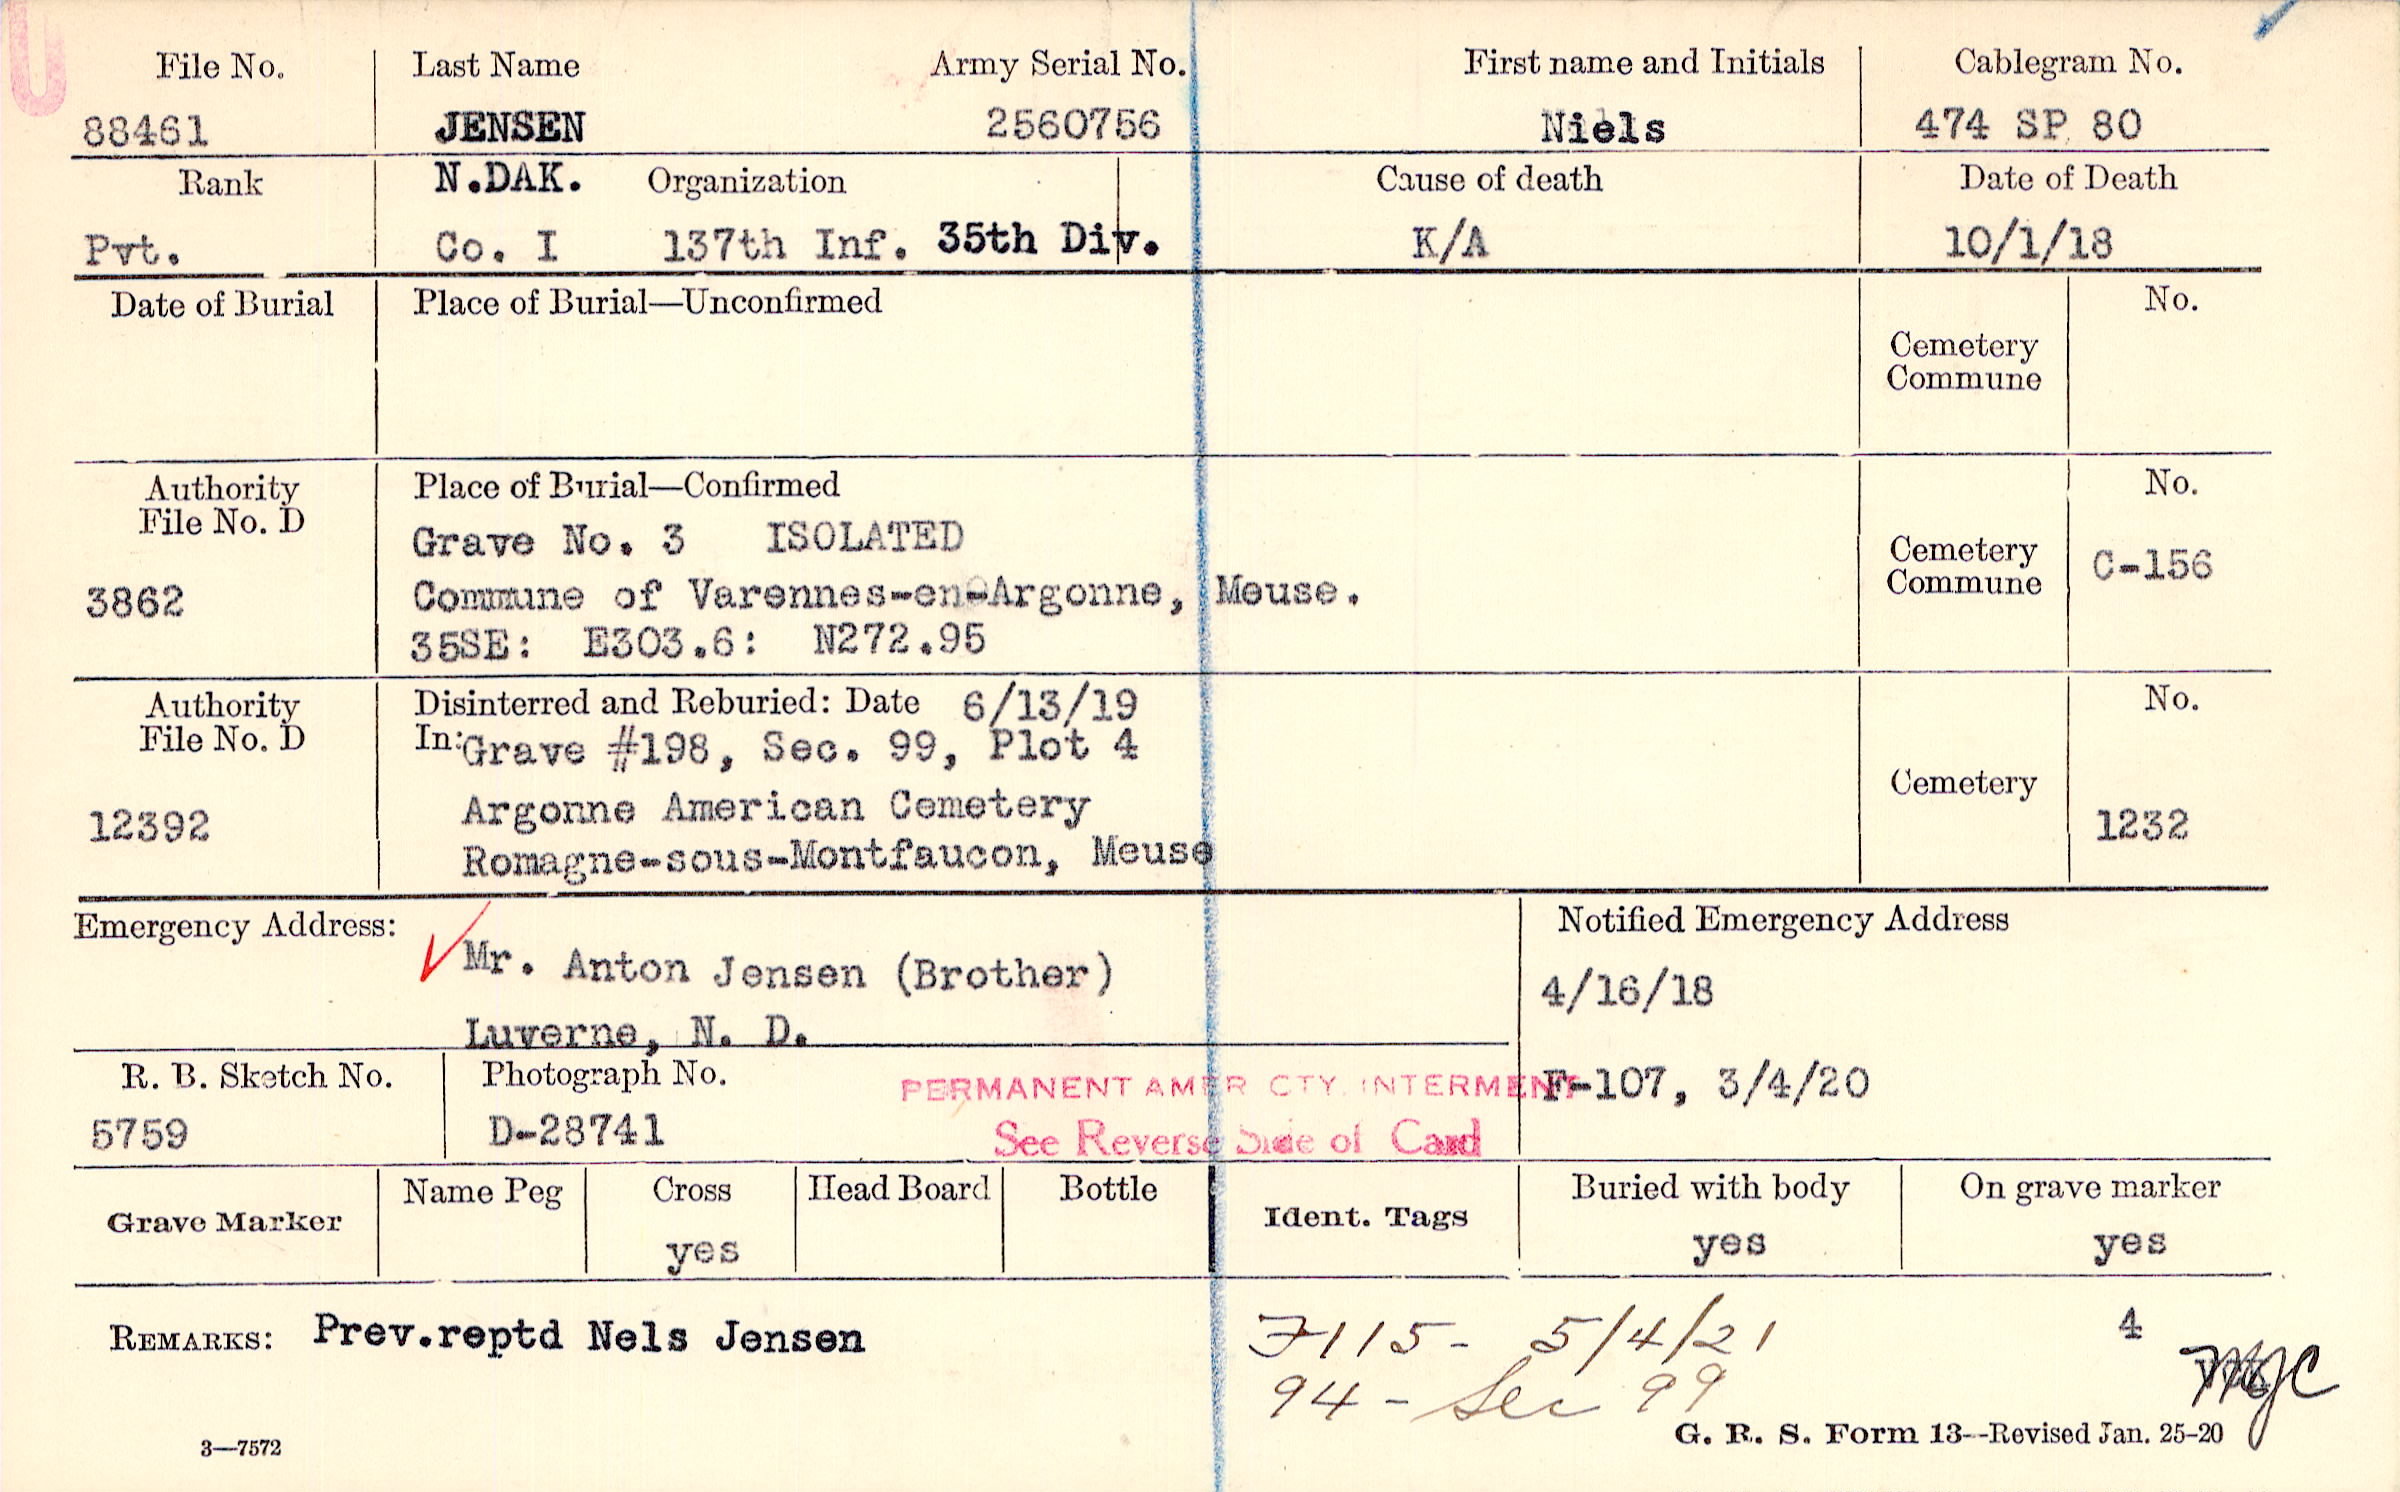 File No. Last Name Army Serial No. First name and Initials Cablegram No.
88461 JENSEN 2560756 Niels 474 SP 80
Rank N.DAK. Organization Cause of death Date of Death
Pvt. Co. I 137th Inf. 35th Div. K/A 10/1/18
Date of Burial Place of Burial—Unconfirmed No.
Cemetery
Commune
Authority Place of Burial—Confirmed No.
File No. D
Grave No. 3 ISOLATED
Cemetery
Commune
C-156
3862 Commune of Varennes-en-Argonne, Meuse.
35SE: E303.6: N272.95
Authority Disinterred and Reburied: Date 6/13/19 No.
File No. D In: Grave #198, Sec. 99, Plot 4
Cemetery
12392 Argonne American Cemetery 1232
Romagne-sous-Montfaucon, Meuse
Emergency Address: Notified Emergency Address
Mr. Anton Jensen (Brother) 4/16/18
Luverne, N. D.
R. B. Sketch No. Photograph No. PERMANENT AMER CTY. INTERMENT F-107, 3/4/20
5759 D-28741 See Reverse Side of Card
Grave Marker Name Peg Cross Head Board Bottle Ident. Tags Buried with body On grave marker
yes yes yes
REMARKS: Prev.reptd Nels Jensen F115- 5/4/21 4
94 - Sec 99
3—7572 G. R. S. Form 13--Revised Jan. 25-20